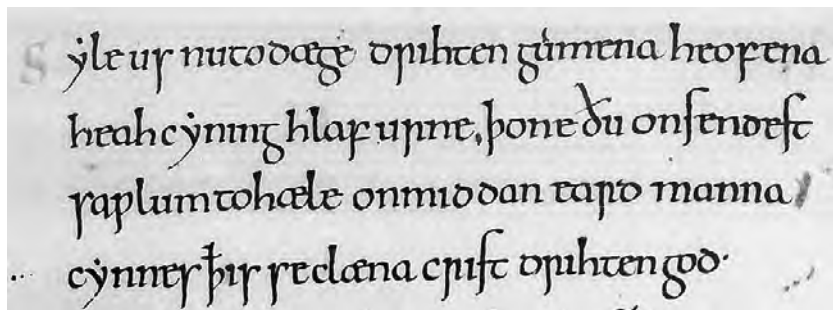 Sẏle us nu to dæge drihten gumena heofena
heah cẏning hlaf urne, þone ðu onsendest
saƿlum to hæle on middan eard manna
cẏnnes ꝥ is se clæna crist drihten god·